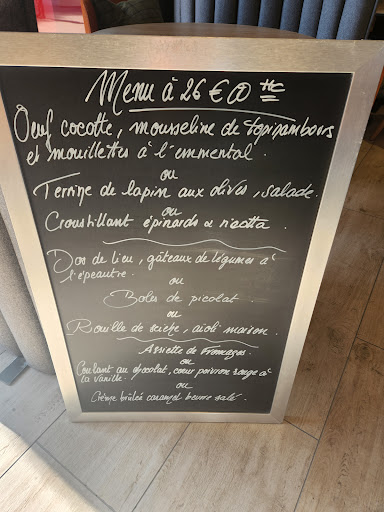 Menu à 26 €
Oeuf cocotte, mousseline de topinambours
et mouillettes à l'emmental.
ou
Terrine de lapin aux olives, salade.
ou
Croustillant épinards & ricotta.
Dos de lieu, gâteaux de légumes à
l'épeautre.
ou
Boles de picolat.
ou
Rouille de seiche, aïoli maison.
Assiette de Fromages.
ou
Coulant au chocolat, coeur poivron rouge à
la vanille.
ou
Crème brûlée caramel beurre salé.